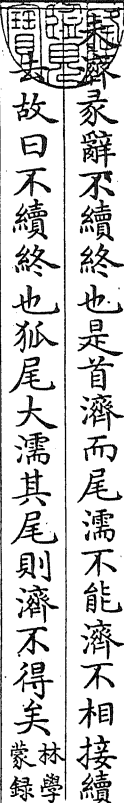 彖辭不續終也是首濟而尾濡不能濟不相接續
故曰不續終也狐尾大濡其尾則濟不得矣林學蒙録